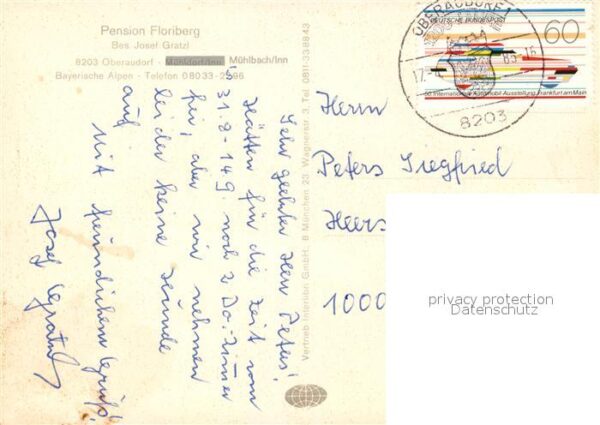 Pension Floriberg
Bes. Josef Gratzl
8203 Oberaudorf - Mühlbach/Inn
Bayerische Alpen - Telefon 08033-2
Sehr geehrter Herr Peters!
Hätten für die Zeit vom
31.8-14.9 noch 2 Do.-Zimmer
frei, aber wir nehmen
leider keine Hunde
auf
Mit freundlichem Gruß!
Josef Gratzl
Vertrieb Interlibri GmbH. 8 München 23, Wagnerstr. 3, Tel. 0811-33 88 43
OBERAUDORF
8203
DEUTSCHE BUNDESPOST
60
50. Internationale Automobil-Ausstellung Frankfurt am Main
Herrn
Peters Siegfried
Heers
1000
privacy protection
Datenschutz